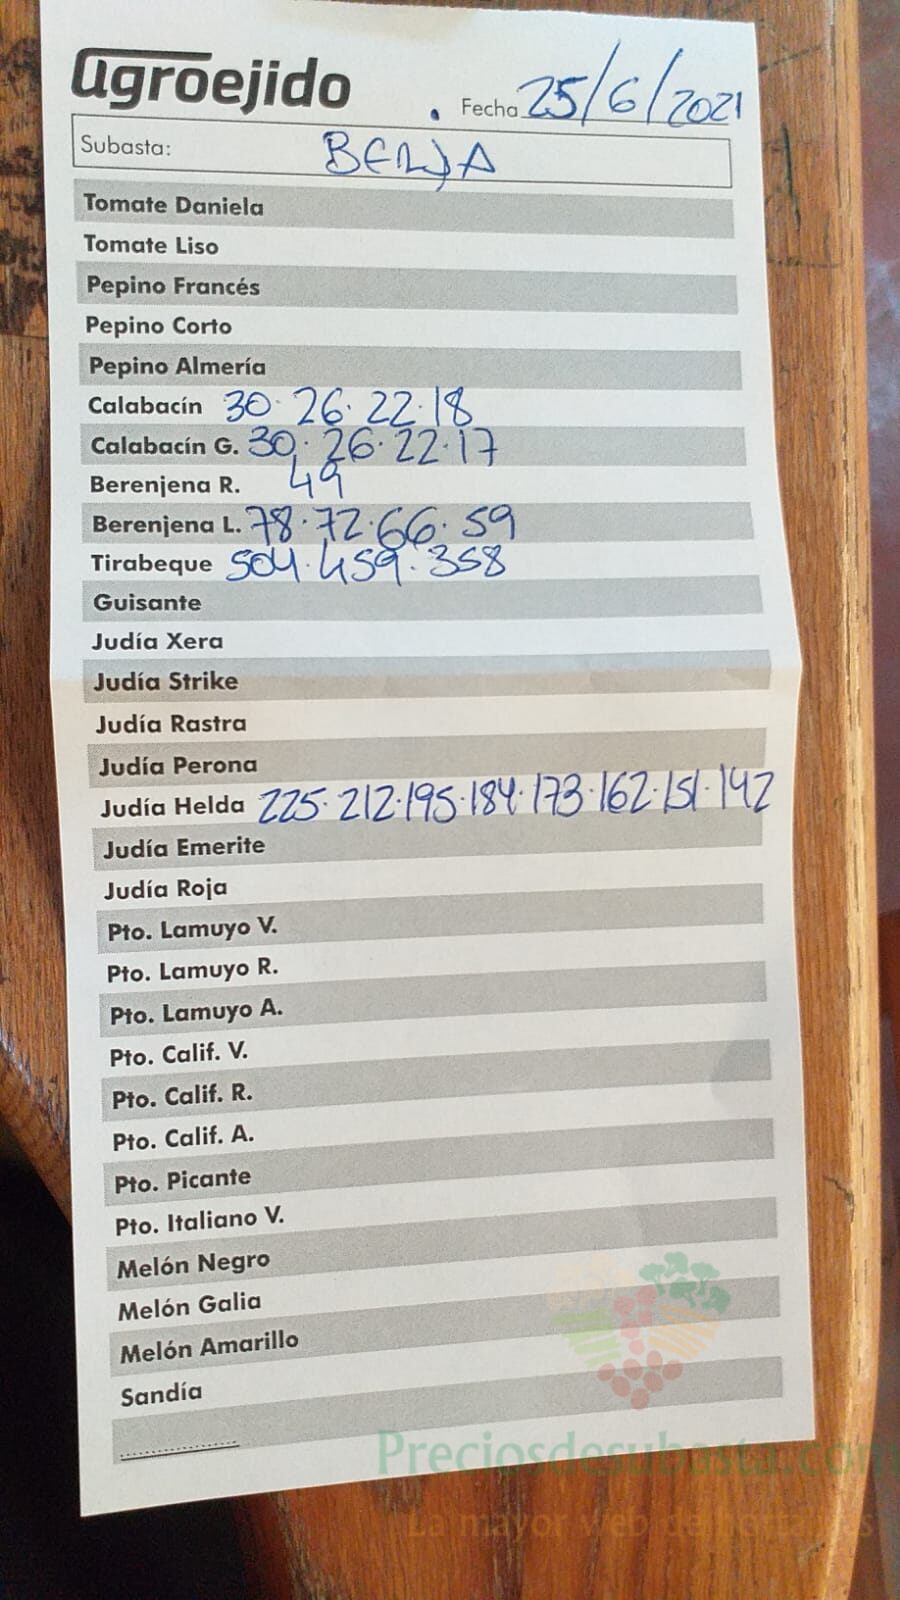 agroejido
. Fecha 25/6/2021
Subasta: BERJA
Tomate Daniela
Tomate Liso
Pepino Francés
Pepino Corto
Pepino Almería
Calabacín 30.26.22.18
Calabacín G. 30.26.22.17
Berenjena R. 49
Berenjena L. 78.72.66.59
Tirabeque 504.459.358
Guisante
Judía Xera
Judía Strike
Judía Rastra
Judía Perona
Judía Helda 225.212.195.184.173.162.151.142
Judía Emerite
Judía Roja
Pto. Lamuyo V.
Pto. Lamuyo R.
Pto. Lamuyo A.
Pto. Calif. V.
Pto. Calif. R.
Pto. Calif. A.
Pto. Picante
Pto. Italiano V.
Melón Negro
Melón Galia
Melón Amarillo
Sandía
Preciosdesubasta.com
La mayor web de hortalizas